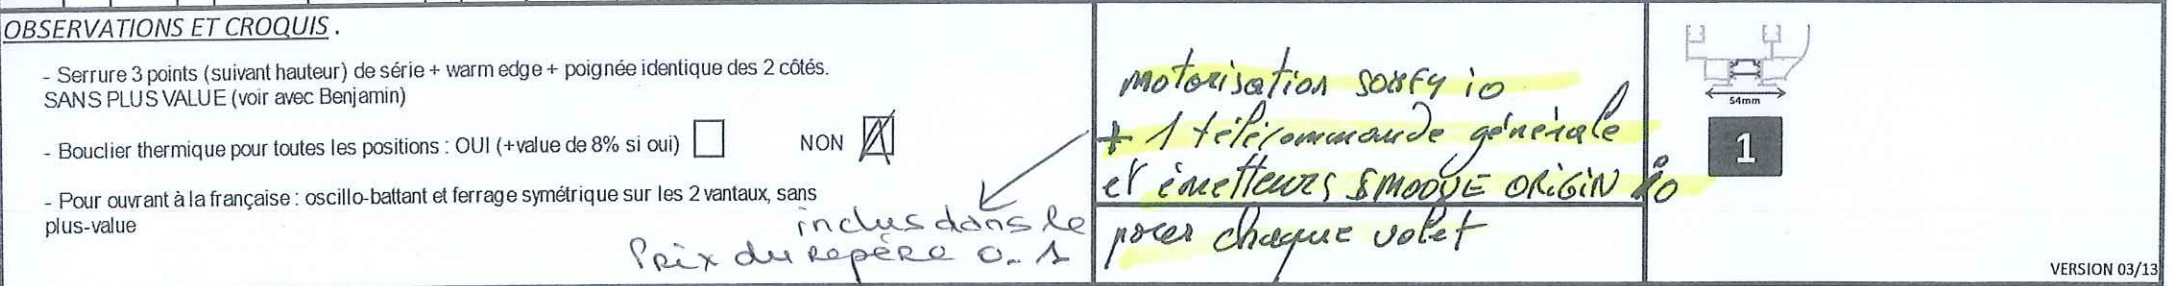 OBSERVATIONS ET CROQUIS .
- Serrure 3 points (suivant hauteur) de série + warm edge + poignée identique des 2 côtés.
SANS PLUS VALUE (voir avec Benjamin)
- Bouclier thermique pour toutes les positions : OUI (+value de 8% si oui)
NON
- Pour ouvrant à la française : oscillo-battant et ferrage symétrique sur les 2 vantaux, sans
plus-value
inclus dans le
Prix du repère 0.1
motorisation somfy io
+ 1 télécommande générale
et émetteurs SMOOVE ORIGIN io
pour chaque volet
54mm
1
VERSION 03/13